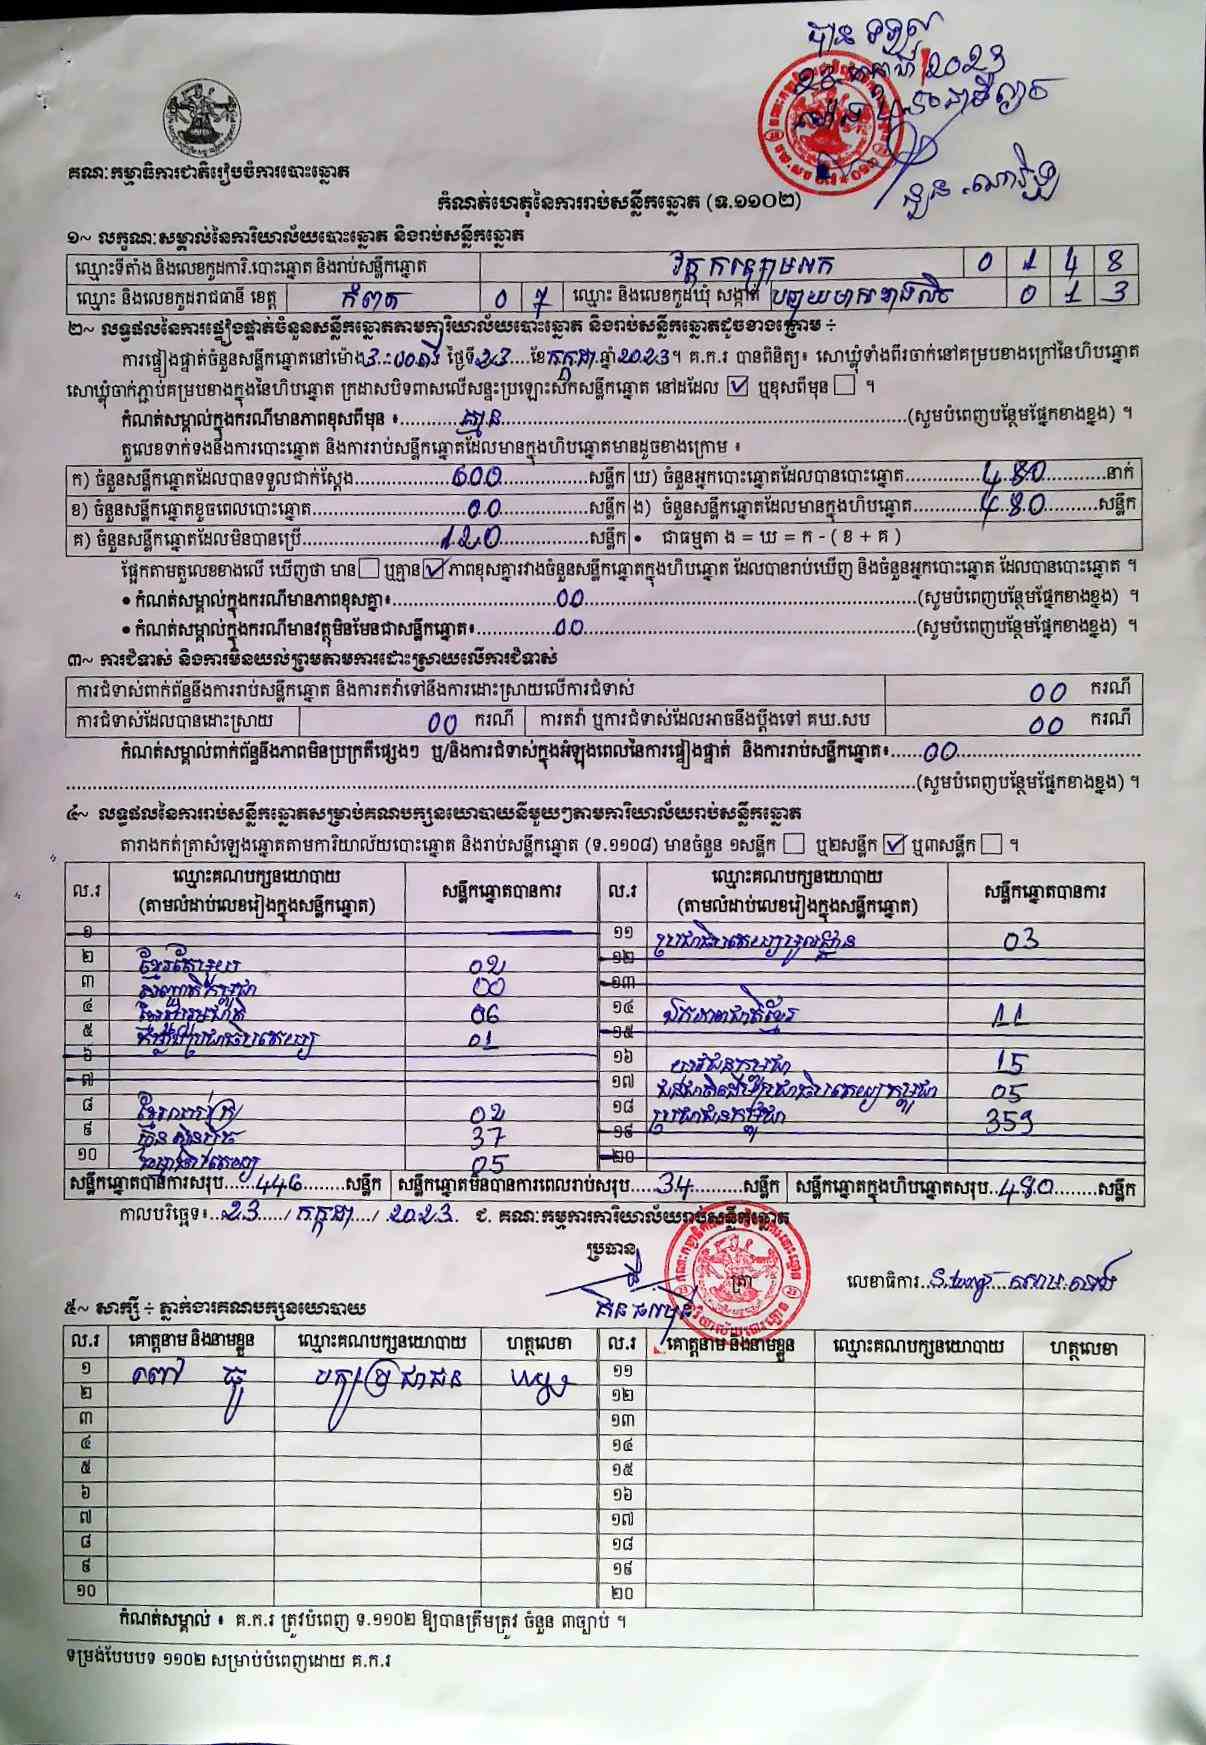 បានទទួល
2023
គណៈកម្មាធិការជាតិរៀបចំការបោះឆ្នោត
កំណត់ហេតុនៃការរាប់សន្លឹកឆ្នោត (ទ.១១០២)
១~ លក្ខណៈសម្គាល់នៃការិយាល័យបោះឆ្នោត និងរាប់សន្លឹកឆ្នោត
ឈ្មោះទីតាំង និងលេខកូដការិ.បោះឆ្នោត និងរាប់សន្លឹកឆ្នោត វត្ត 0 1 4 8
ឈ្មោះ និងលេខកូដរាជធានី ខេត្ត កំពត 0 7 ឈ្មោះ និងលេខកូដឃុំ សង្កាត់ បន្ទាយមាសខាងលិច 0 1 3
២~ លទ្ធផលនៃការផ្ទៀងផ្ទាត់ចំនួនសន្លឹកឆ្នោតតាមការិយាល័យបោះឆ្នោត និងរាប់សន្លឹកឆ្នោតដូចខាងក្រោម ÷
ការផ្ទៀងផ្ទាត់ចំនួនសន្លឹកឆ្នោតនៅម៉ោង 3:00 ថ្ងៃទី 23 ខែ កក្កដា ឆ្នាំ 2023 ។ គ.ក.រ បានពិនិត្យ៖ សោឃ្លុំទាំងពីរចាក់នៅគម្របខាងក្រៅនៃហិបឆ្នោត
សោឃ្លុំចាក់ភ្ជាប់គម្របខាងក្នុងនៃហិបឆ្នោត ក្រដាសបិទពាសលើសន្ទះប្រឡោះសិកសន្លឹកឆ្នោត នៅដដែល ☑ ឬខុសពីមុន ☐ ។
កំណត់សម្គាល់ក្នុងករណីមានភាពខុសពីមុន ៖ គ្មាន (សូមបំពេញបន្ថែមផ្នែកខាងខ្នង) ។
តួលេខទាក់ទងនឹងការបោះឆ្នោត និងការរាប់សន្លឹកឆ្នោតដែលមានក្នុងហិបឆ្នោតមានដូចខាងក្រោម ៖
ក) ចំនួនសន្លឹកឆ្នោតដែលបានទទួលជាក់ស្តែង 600 សន្លឹក ឃ) ចំនួនអ្នកបោះឆ្នោតដែលបានបោះឆ្នោត 480 នាក់
ខ) ចំនួនសន្លឹកឆ្នោតខូចពេលបោះឆ្នោត 00 សន្លឹក ង) ចំនួនសន្លឹកឆ្នោតដែលមានក្នុងហិបឆ្នោត 480 សន្លឹក
គ) ចំនួនសន្លឹកឆ្នោតដែលមិនបានប្រើ 120 សន្លឹក • ជាធម្មតា ង = ឃ = ក - ( ខ + គ )
ផ្អែកតាមតួលេខខាងលើ ឃើញថា មាន ☐ ឬគ្មាន ☑ ភាពខុសគ្នារវាងចំនួនសន្លឹកឆ្នោតក្នុងហិបឆ្នោត ដែលបានរាប់ឃើញ និងចំនួនអ្នកបោះឆ្នោត ដែលបានបោះឆ្នោត ។
• កំណត់សម្គាល់ក្នុងករណីមានភាពខុសគ្នា៖ 00 (សូមបំពេញបន្ថែមផ្នែកខាងខ្នង) ។
• កំណត់សម្គាល់ក្នុងករណីមានវត្ថុមិនមែនជាសន្លឹកឆ្នោត៖ 00 (សូមបំពេញបន្ថែមផ្នែកខាងខ្នង) ។
៣~ ការជំទាស់ និងការមិនយល់ព្រមតាមការដោះស្រាយលើការជំទាស់
ការជំទាស់ពាក់ព័ន្ធនឹងការរាប់សន្លឹកឆ្នោត និងការតវ៉ាទៅនឹងការដោះស្រាយលើការជំទាស់ 00 ករណី
ការជំទាស់ដែលបានដោះស្រាយ 00 ករណី ការតវ៉ា ឬការជំទាស់ដែលអាចនឹងប្តឹងទៅ គឃ.សប 00 ករណី
កំណត់សម្គាល់ពាក់ព័ន្ធនឹងភាពមិនប្រក្រតីផ្សេងៗ ឬ/និងការជំទាស់ក្នុងអំឡុងពេលនៃការផ្ទៀងផ្ទាត់ និងការរាប់សន្លឹកឆ្នោត៖ 00
(សូមបំពេញបន្ថែមផ្នែកខាងខ្នង) ។
៤~ លទ្ធផលនៃការរាប់សន្លឹកឆ្នោតសម្រាប់គណបក្សនយោបាយនីមួយៗតាមការិយាល័យរាប់សន្លឹកឆ្នោត
តារាងកត់ត្រាសំឡេងឆ្នោតតាមការិយាល័យបោះឆ្នោត និងរាប់សន្លឹកឆ្នោត (ទ.១១០៨) មានចំនួន ១សន្លឹក ☐ ឬ២សន្លឹក ☑ ឬ៣សន្លឹក ☐ ។
ល.រ ឈ្មោះគណបក្សនយោបាយ (តាមលំដាប់លេខរៀងក្នុងសន្លឹកឆ្នោត) សន្លឹកឆ្នោតបានការ ល.រ ឈ្មោះគណបក្សនយោបាយ (តាមលំដាប់លេខរៀងក្នុងសន្លឹកឆ្នោត) សន្លឹកឆ្នោតបានការ
១ ១១ ប្រជាធិបតេយ្យមូលដ្ឋាន 03
២ ខ្មែរតែមួយ 02 ១២
៣ សញ្ជាតិកម្ពុជា 00 ១៣
៤ 06 ១៤ ឯកភាពជាតិខ្មែរ 11
៥ សំបុកឃ្មុំប្រជាធិបតេយ្យ 01 ១៥
៦ ១៦ យុវជនកម្ពុជា 15
៧ ១៧ ជនជាតិដើមប្រជាធិបតេយ្យកម្ពុជា 05
៨ ខ្មែរឈប់ក្រ 02 ១៨ ប្រជាជនកម្ពុជា 359
៩ ហ្វ៊ុនស៊ិនប៉ិច 37 ១៩
១០ ធម្មាធិបតេយ្យ 05 ២០
សន្លឹកឆ្នោតបានការសរុប 446 សន្លឹក សន្លឹកឆ្នោតមិនបានការពេលរាប់សរុប 34 សន្លឹក សន្លឹកឆ្នោតក្នុងហិបឆ្នោតសរុប 480 សន្លឹក
កាលបរិច្ឆេទ៖ 23 / កក្កដា / 2023 ជ. គណៈកម្មការការិយាល័យរាប់សន្លឹកឆ្នោត
ប្រធាន ត្រា លេខាធិការ
៥~ សាក្សី ÷ ភ្នាក់ងារគណបក្សនយោបាយ
ល.រ គោត្តនាម និងនាមខ្លួន ឈ្មោះគណបក្សនយោបាយ ហត្ថលេខា ល.រ គោត្តនាម និងនាមខ្លួន ឈ្មោះគណបក្សនយោបាយ ហត្ថលេខា
១ បក្សប្រជាជន ១១
២ ១២
៣ ១៣
៤ ១៤
៥ ១៥
៦ ១៦
៧ ១៧
៨ ១៨
៩ ១៩
១០ ២០
កំណត់សម្គាល់ ៖ គ.ក.រ ត្រូវបំពេញ ទ.១១០២ ឱ្យបានត្រឹមត្រូវ ចំនួន ៣ច្បាប់ ។
ទម្រង់បែបបទ ១១០២ សម្រាប់បំពេញដោយ គ.ក.រ